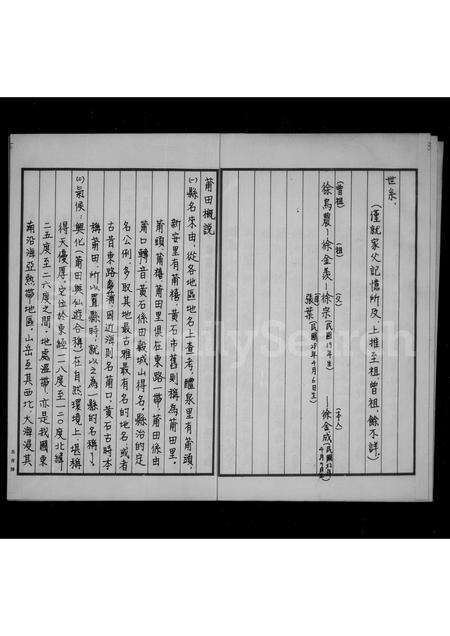 世系、
(謹就家父記憶所及,上推至祖,曾祖,餘不詳。)
(曾祖) (祖) (父) (本人)
徐烏農—徐金羨—徐宗(民國19年生)—徐金成
張葉(民國25年4月6日生)
莆田概說
(一)縣名來由:從各地區地名上查考,醴泉里有莆頭,
新安里有莆禧,黃石市舊則稱為莆田里,
莆頭莆禧莆田里俱在東路一帶,莆田係由
莆口轉音,黃石係由穀城山得名,縣治的定
名公例多取其地最古雅最有名的地名,或者
古昔東路瀕海因近海則名莆口,黃石古時本
稱莆田,所以置縣時,就以之為一縣的名稱了。
(二)氣候:興化(莆田與仙遊合稱)在自然環境上,堪稱
得天優厚,它位於東經一一八度至一二〇度北緯
二五度至二六度之間,地處溫帶,亦是我國東
南沿海亞熱帶地區,山岳至其西北,大海漫其